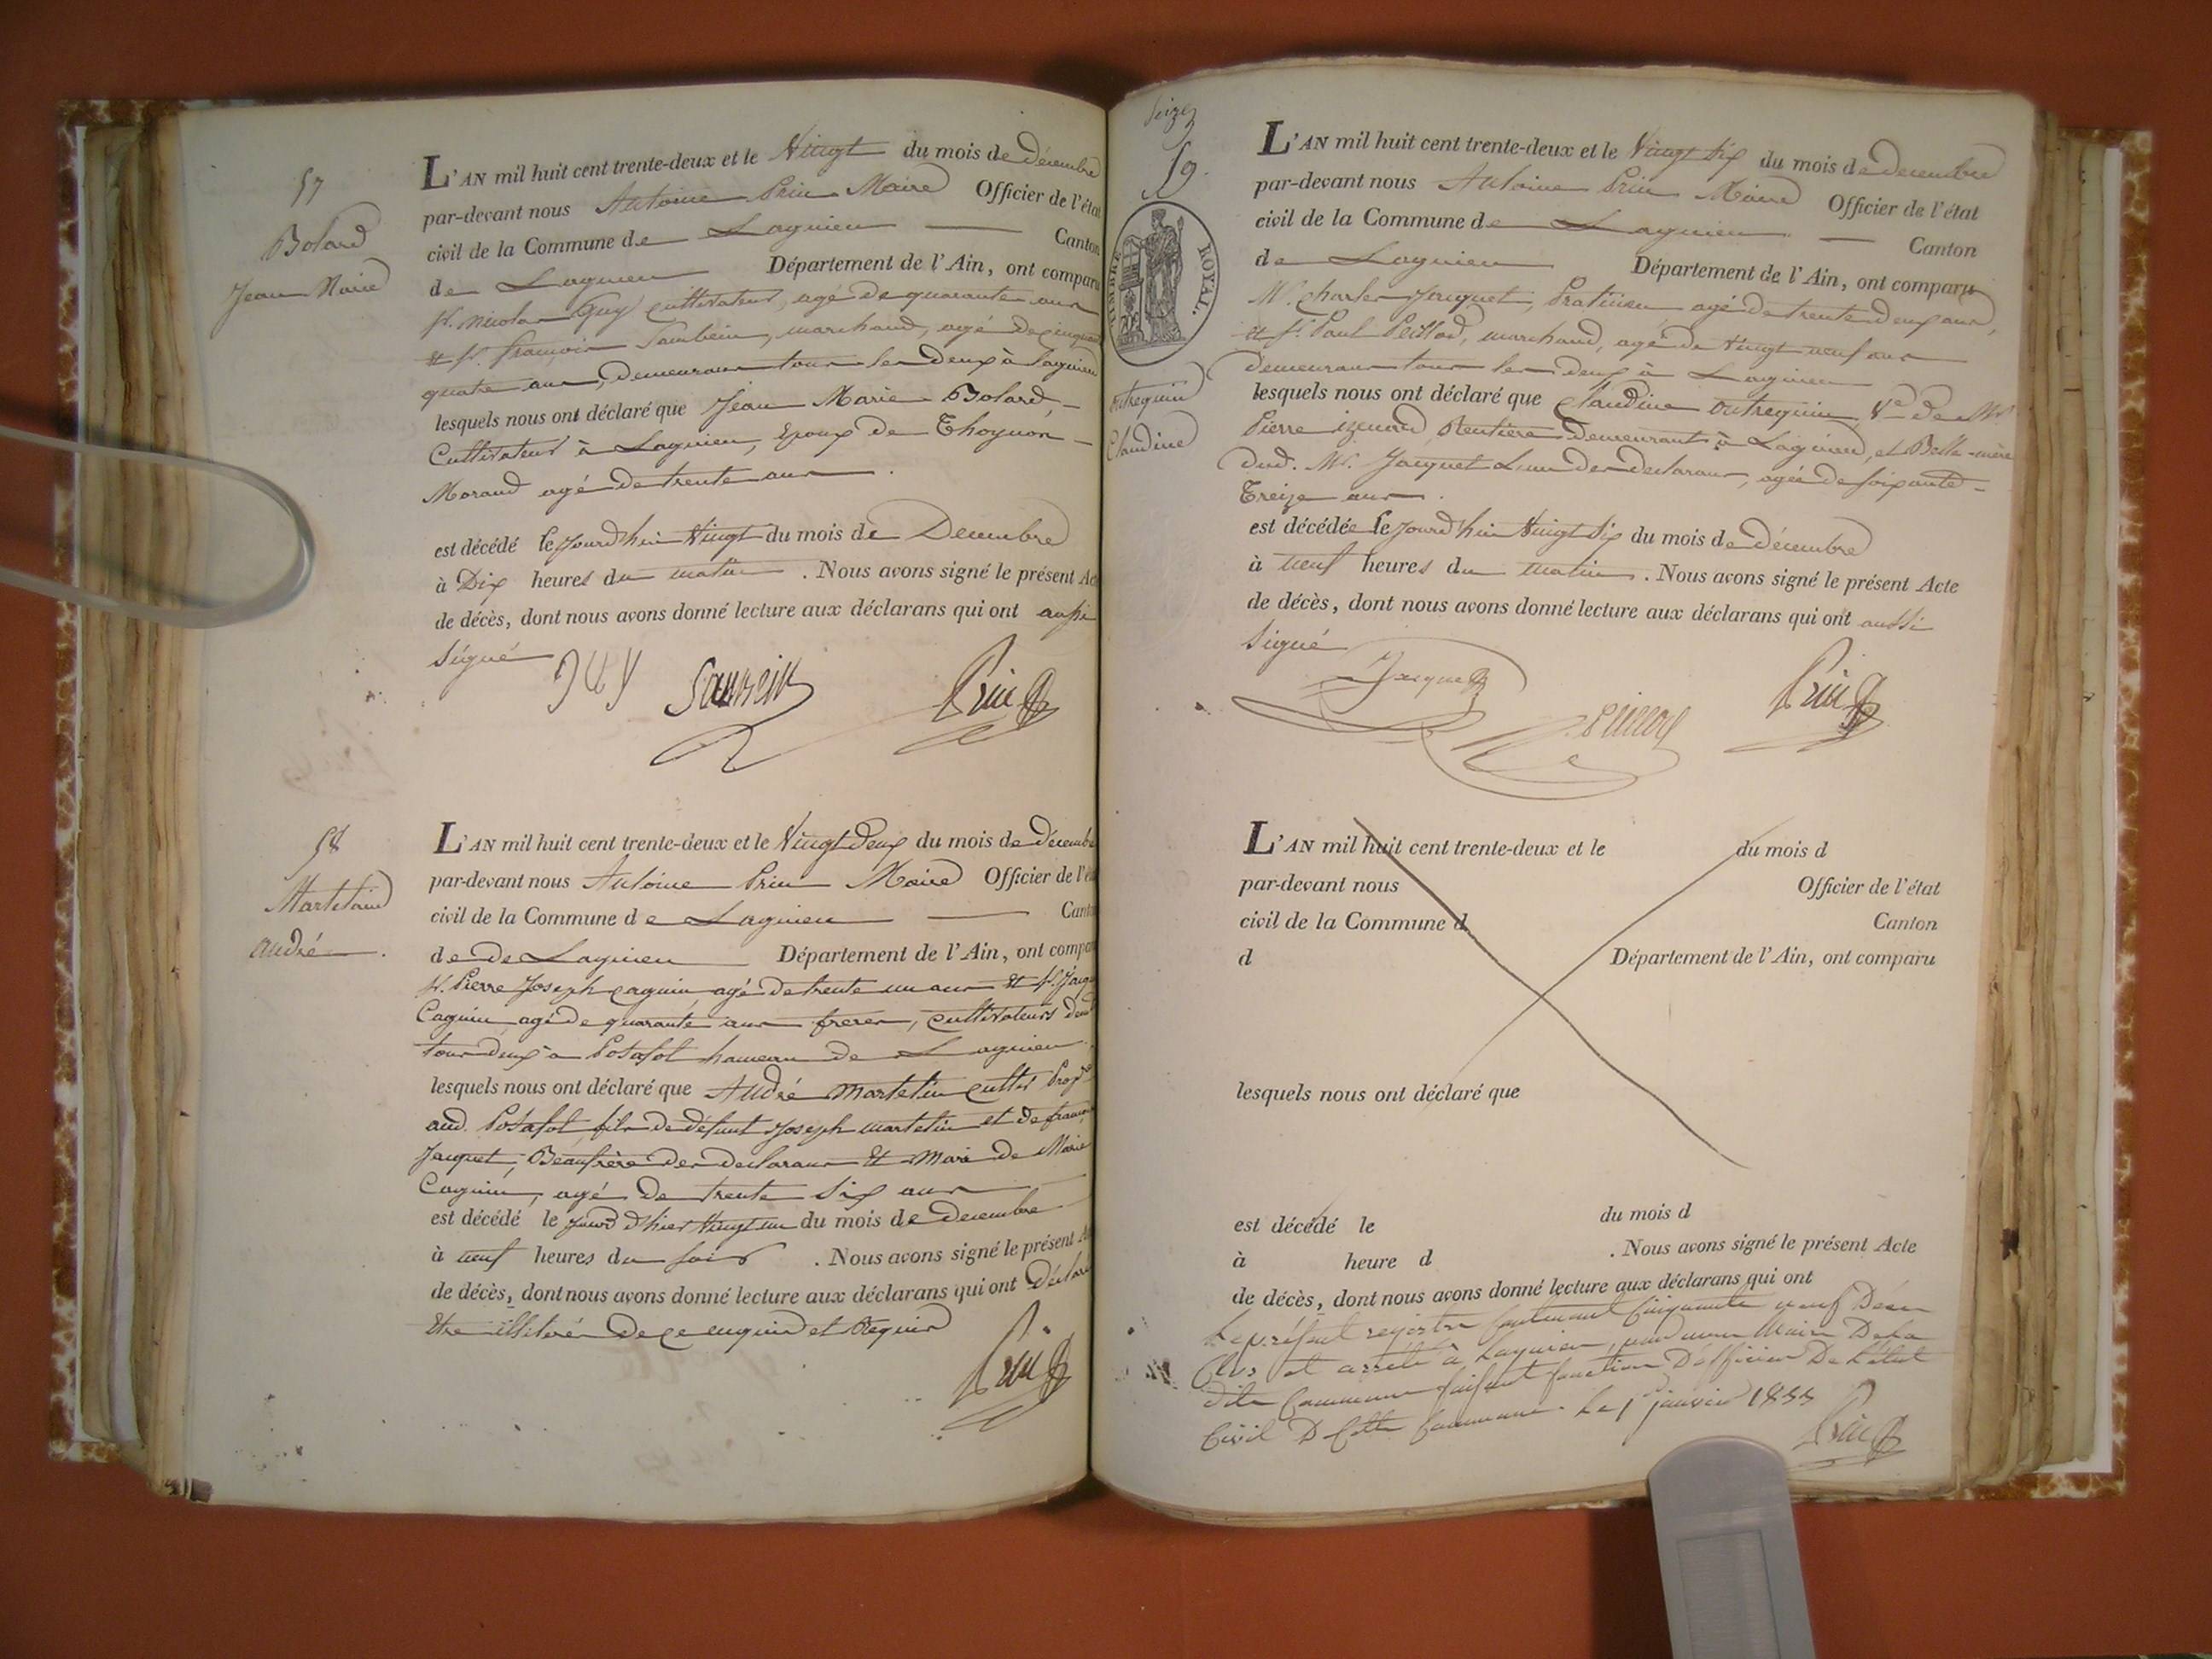 57
Bolard
Jean Marie
L'AN mil huit cent trente-deux et le Vingt du mois de Décembre
par-devant nous Antoine Prin Maire Officier de l'état
civil de la Commune de Lagnieu Canton
de Lagnieu Département de l'Ain, ont comparu
Sr. Nicolas Guy Cultivateur, agé de quarante ans
et Sr. François marchand, agé de cinquante
quatre ans, demeurans tous les deux à Lagnieu
lesquels nous ont déclaré que Jean Marie Bolard,
Cultivateur à Lagnieu, Epoux de
Morand agé de trente ans.
est décédé le Jourd'hui Vingt du mois de Decembre
à Dix heures du matin. Nous avons signé le présent Acte
de décès, dont nous avons donné lecture aux déclarans qui ont aussi
Signé
Prin
58
André.
L'AN mil huit cent trente-deux et le Vingt Deux du mois de Décembre
par-devant nous Antoine Prin Maire Officier de l'état
civil de la Commune de Lagnieu Canton
de De Lagnieu Département de l'Ain, ont comparu
Sr. Pierre Joseph Caguin agé de trente un ans et Sr. Jacque
Caguin agé de quarante ans freres, Cultivateurs demt
tous deux à Posafol hameau de Lagnieu.
lesquels nous ont déclaré que André Martelin cultr Propre
aud. Posafol fils de défunt Joseph Martelin et de
Jacquet, Beaufrère des declarans et Mari de Marie
Caguin, agé de trente Six ans
est décédé le Jourd'hier Vingt un du mois de Decembre
à neuf heures du soir. Nous avons signé le présent Acte
de décès, dont nous avons donné lecture aux déclarans qui ont Déclaré
Etre illiterés de ce enquis et Requis
Prin
Seize
59.
TIMBRE ROYAL.
outrequin
Claudine
L'AN mil huit cent trente-deux et le Vingt Six du mois de decembre
par-devant nous Antoine Prin Maire Officier de l'état
civil de la Commune de Lagnieu Canton
de Lagnieu Département de l'Ain, ont comparu
Mr. Charles Jacquet, Praticien agé de trente deux ans,
et Sr. Paul Peillod, marchand, agé de Vingt neuf ans
demeurans tous les deux à Lagnieu
lesquels nous ont déclaré que Claudine outrequin, Ve de Mr
Pierre Rentière demeurant à Lagnieu, et Belle-mère
dud. Mr. Jacquet L'un des declarans, agée de soixante
Treize ans.
est décédée le Jourd'hui Vingt Six du mois de décembre
à neuf heures du matin. Nous avons signé le présent Acte
de décès, dont nous avons donné lecture aux déclarans qui ont aussi
Signé
Jacquet
Peillod
Prin
L'AN mil huit cent trente-deux et le du mois d
par-devant nous Officier de l'état
civil de la Commune d Canton
d Département de l'Ain, ont comparu
lesquels nous ont déclaré que
est décédé le du mois d
à heure d . Nous avons signé le présent Acte
de décès, dont nous avons donné lecture aux déclarans qui ont
Le présent registre contenant Cinquante neuf Décès
Clos et arrêté à Lagnieu, par nous Maire De la
dite Commune faisant fonction D'officier De L'état
Civil D Cette Commune. Le 1er janvier 1833
Prin